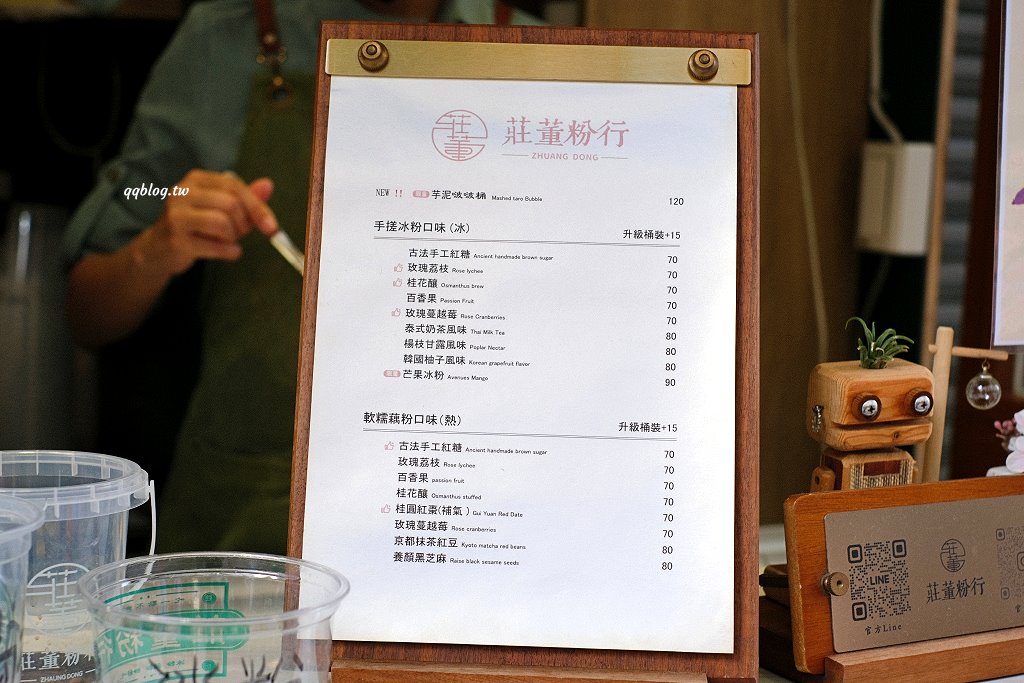 qqblog.tw
莊董
莊董粉行
ZHUANG DONG
NEW !! 芋泥啵啵桶 Mashed taro Bubble 120
手搓冰粉口味(冰) 升級桶裝+15
古法手工紅糖 Ancient handmade brown sugar 70
玫瑰荔枝 Rose lychee 70
桂花釀 Osmanthus brew 70
百香果 Passion Fruit 70
玫瑰蔓越莓 Rose Cranberries 70
泰式奶茶風味 Thai Milk Tea 80
楊枝甘露風味 Poplar Nectar 80
韓國柚子風味 Korean grapefruit flavor 80
芒果冰粉 Avenues Mango 90
軟糯藕粉口味(熱) 升級桶裝+15
古法手工紅糖 Ancient handmade brown sugar 70
玫瑰荔枝 Rose lychee 70
百香果 passion fruit 70
桂花釀 Osmanthus stuffed 70
桂圓紅棗(補氣) Gui Yuan Red Date 70
玫瑰蔓越莓 Rose cranberries 70
京都抹茶紅豆 Kyoto matcha red beans 80
養顏黑芝麻 Raise black sesame seeds 80
LINE
官方Line
莊董粉行
莊董粉
ZHUANG DONG